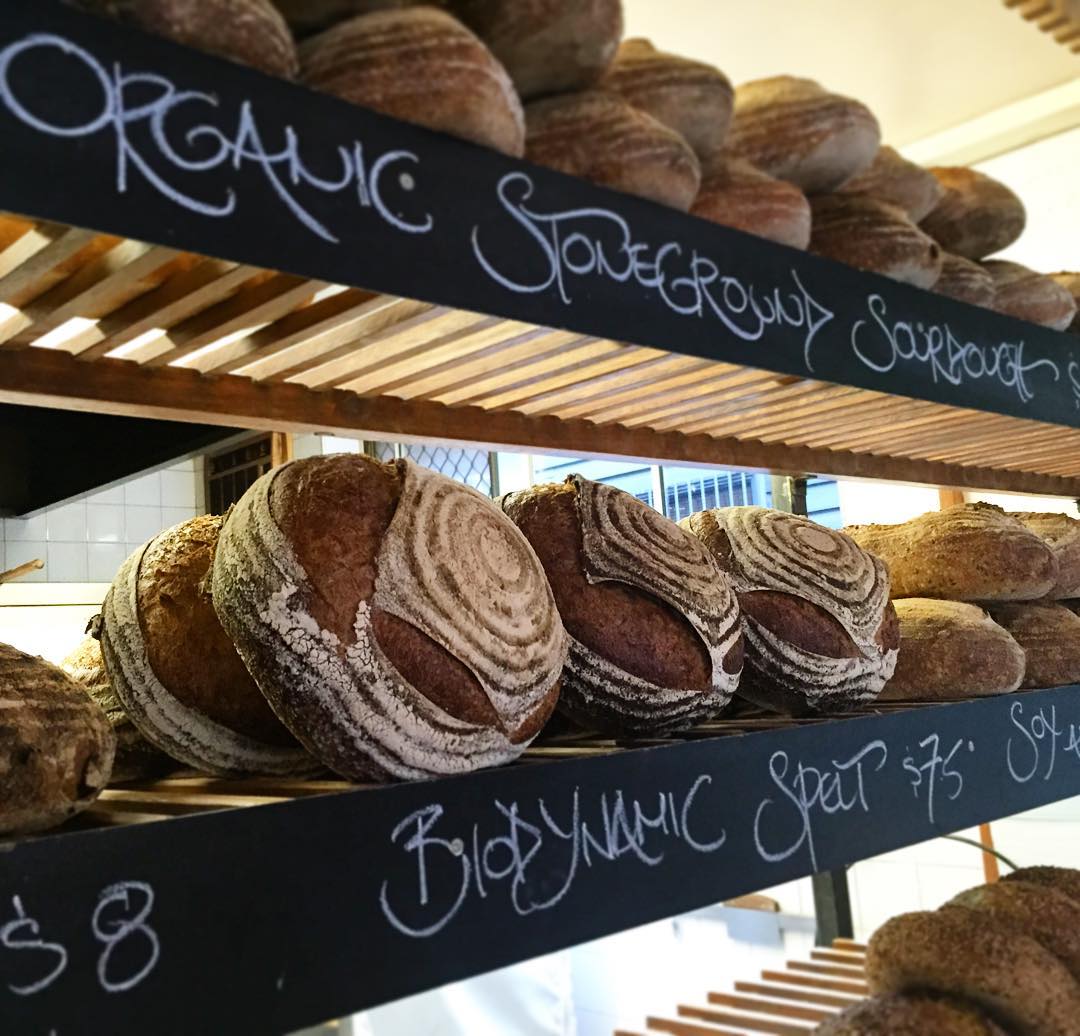 ORGANIC STONEGROUND SOURDOUGH $
$8 BIODYNAMIC SPELT $75 SOY